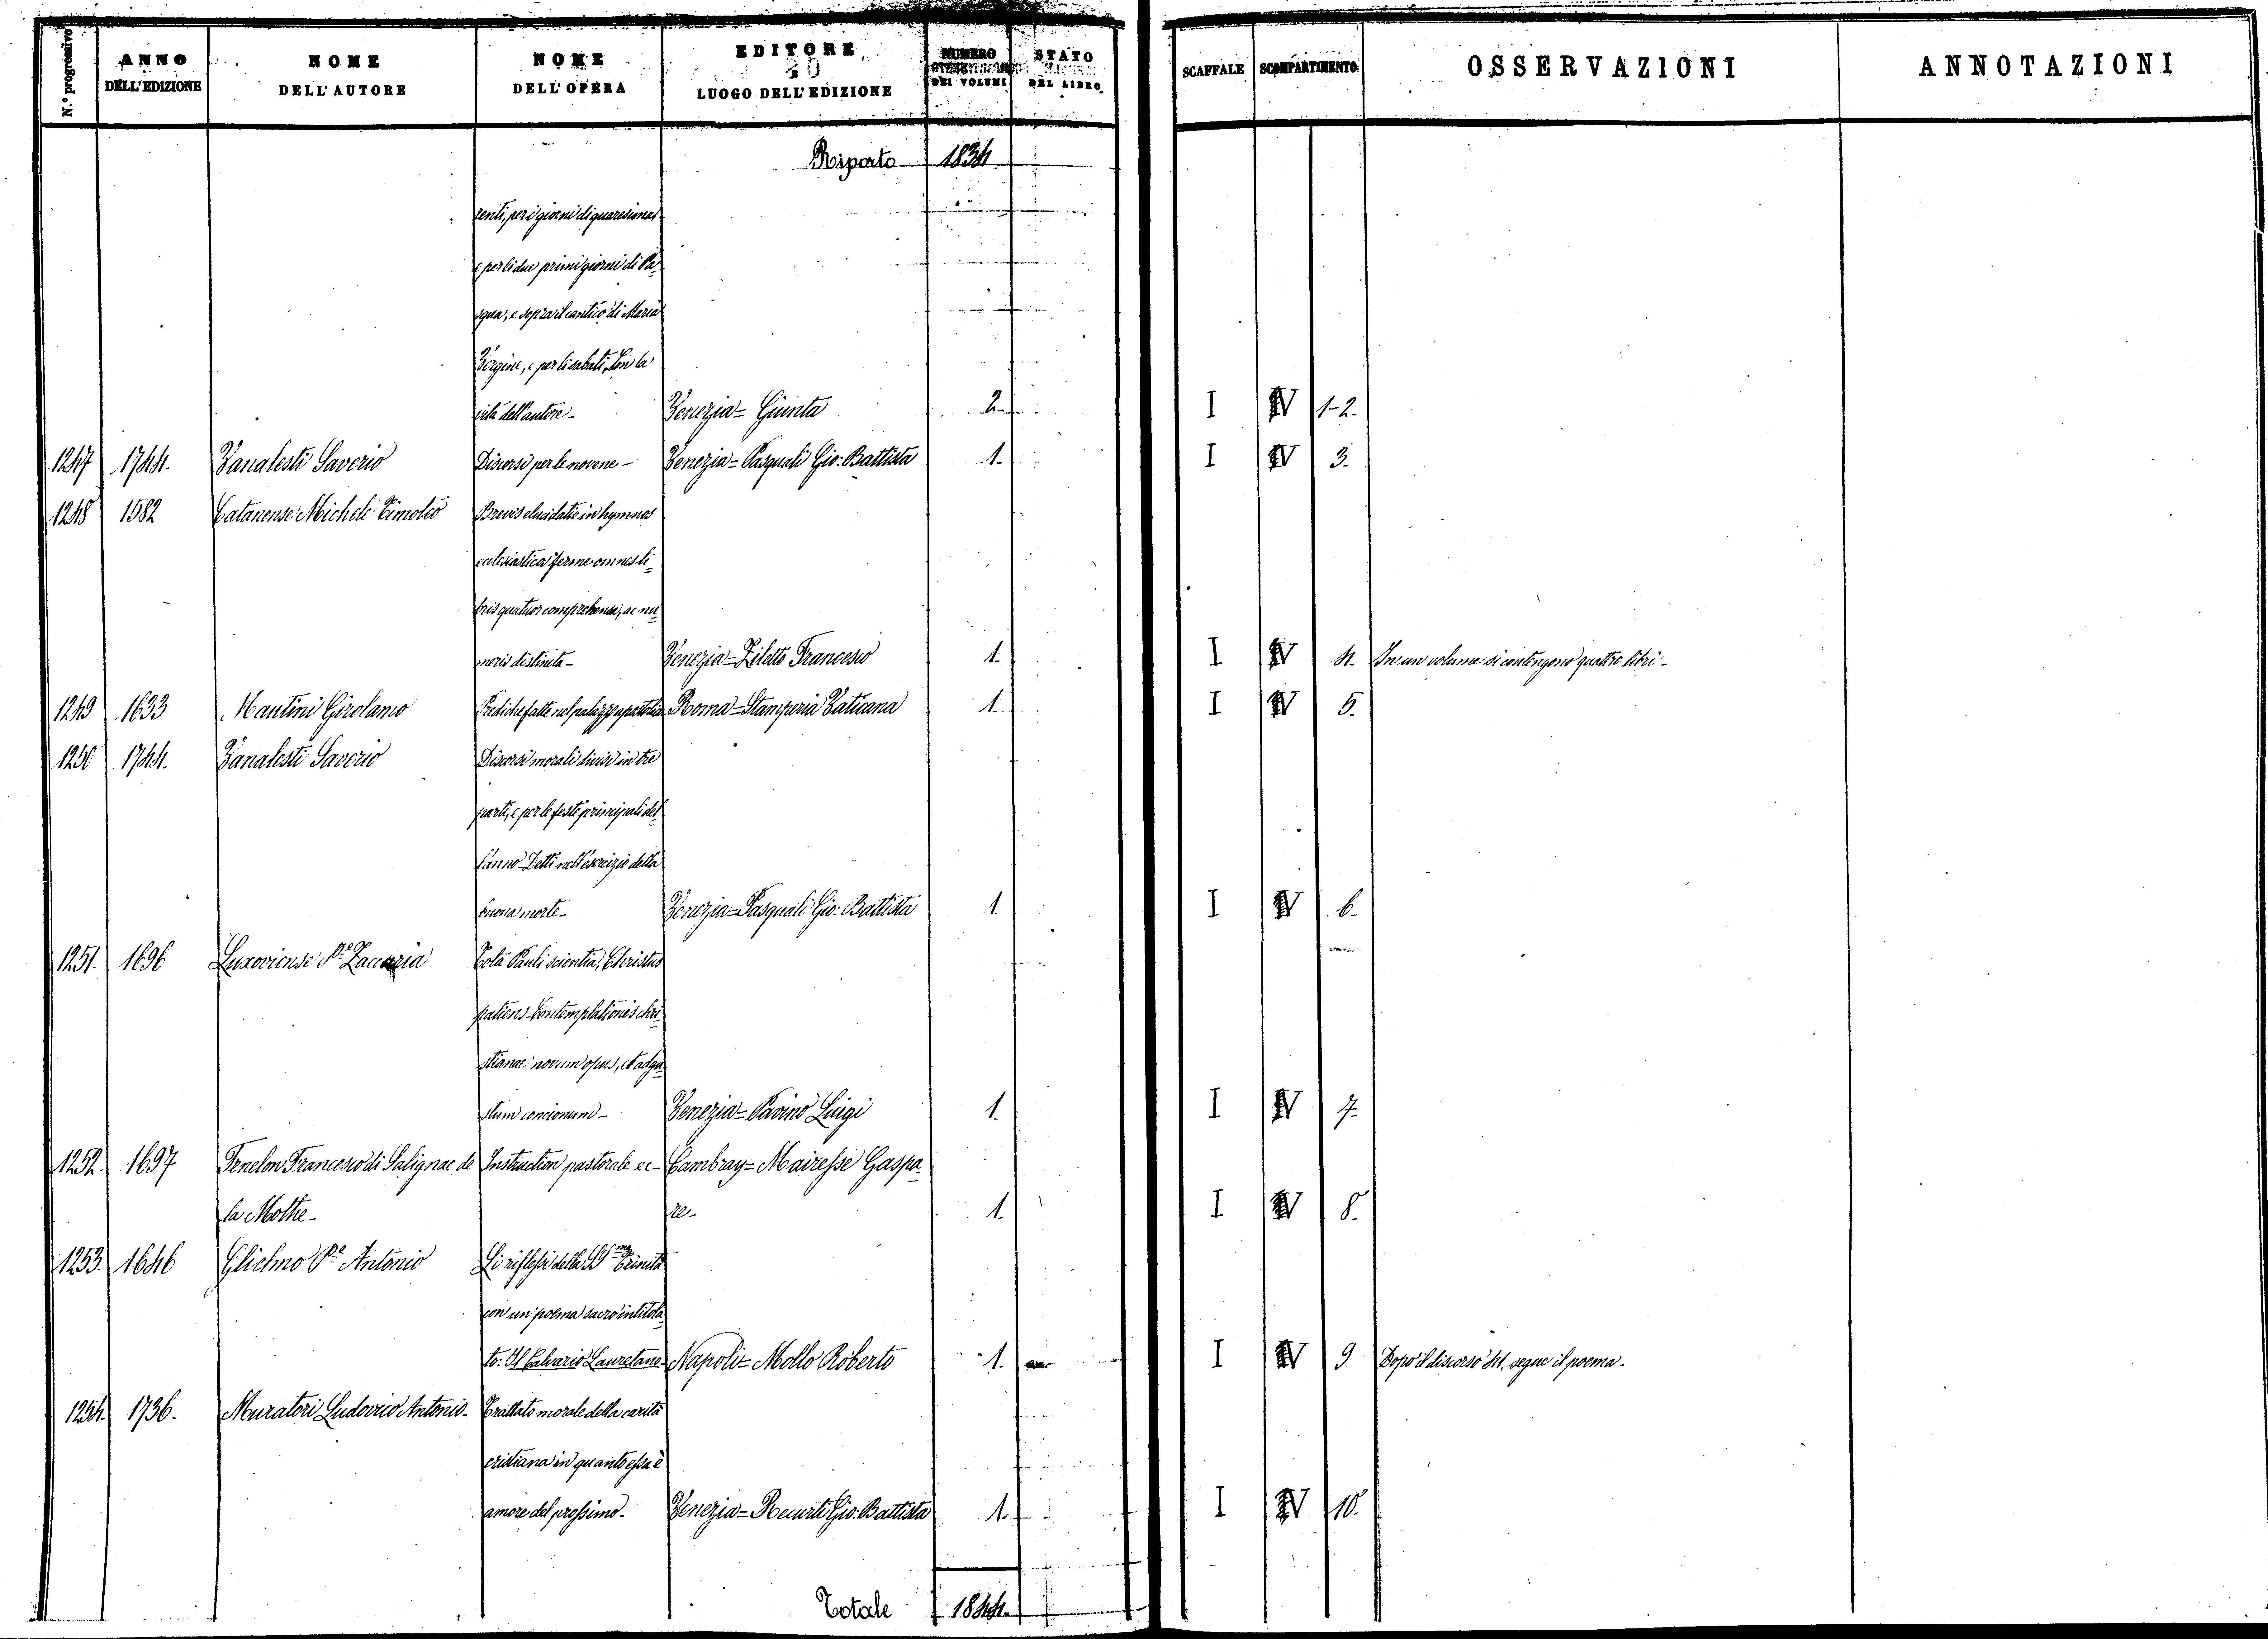 N.° progressivo
ANNO DELL'EDIZIONE
NOME DELL'AUTORE
NOME DELL'OPERA
EDITORE E LUOGO DELL'EDIZIONE
NUMERO DEI VOLUMI
STATO DEL LIBRO
SCAFFALE
SCOMPARTIMENTO
OSSERVAZIONI
ANNOTAZIONI
Riporto 1834
renti, per i giorni di quaresima,
e per li due primi giorni di Pa=
squa, e sopra il cantico di Maria
Vergine, e per li sabati, con la
vita dell'autore- Venezia= Giunta 2. I IV 1-2.
1247 1744. Vanalesti Saverio Discorsi per le novene- Venezia= Pasquali Gio: Battista 1. I IV 3.
1248 1582 Catanense Michele Timoteo Brevis elucidatio in hymnos
ecclesiasticos ferme omnes li=
bris quatuor comprehensa, ac nu=
meris distincta- Venezia= Ziletto Francesco 1. I IV 4. In un volume si contengono quattro libri-
1249 1633 Mautini Girolamo Prediche fatte nel palazzo apostolico Roma= Stamperia Vaticana 1. I IV 5.
1250 1744. Vanalesti Saverio Discorsi morali divisi in tre
parti, e per le feste principali del=
l'anno Detti nell'esercizio della
buona morte- Venezia= Pasquali Gio: Battista 1. I IV 6.
1251. 1696 Luxoviense Pe. Zaccaria Tota Pauli scientia, Christus
patiens- Contemplationis chri=
stianae novum opus, et adgu=
stum concionum- Venezia= Pavino Luigi 1. I IV 7.
1252. 1697 Fenelon Francesco di Salignac de Instruction pastorale ec- Cambray= Mairesse Gaspa=
la Mothe- re- 1. I IV 8.
1253. 1646 Glielmo Pe. Antonio Li riflessi della SSma Trinità
con un poema sacro intitola=
to: Il Calvario Lauretano- Napoli= Mollo Roberto 1. I IV 9. Dopo il discorso 44. segue il poema-
1254. 1736. Muratori Ludovico Antonio- Trattato morale della carità
cristiana in quanto essa è
amore del prossimo- Venezia= Recurti Gio: Battista 1. I IV 10.
Totale 1844.